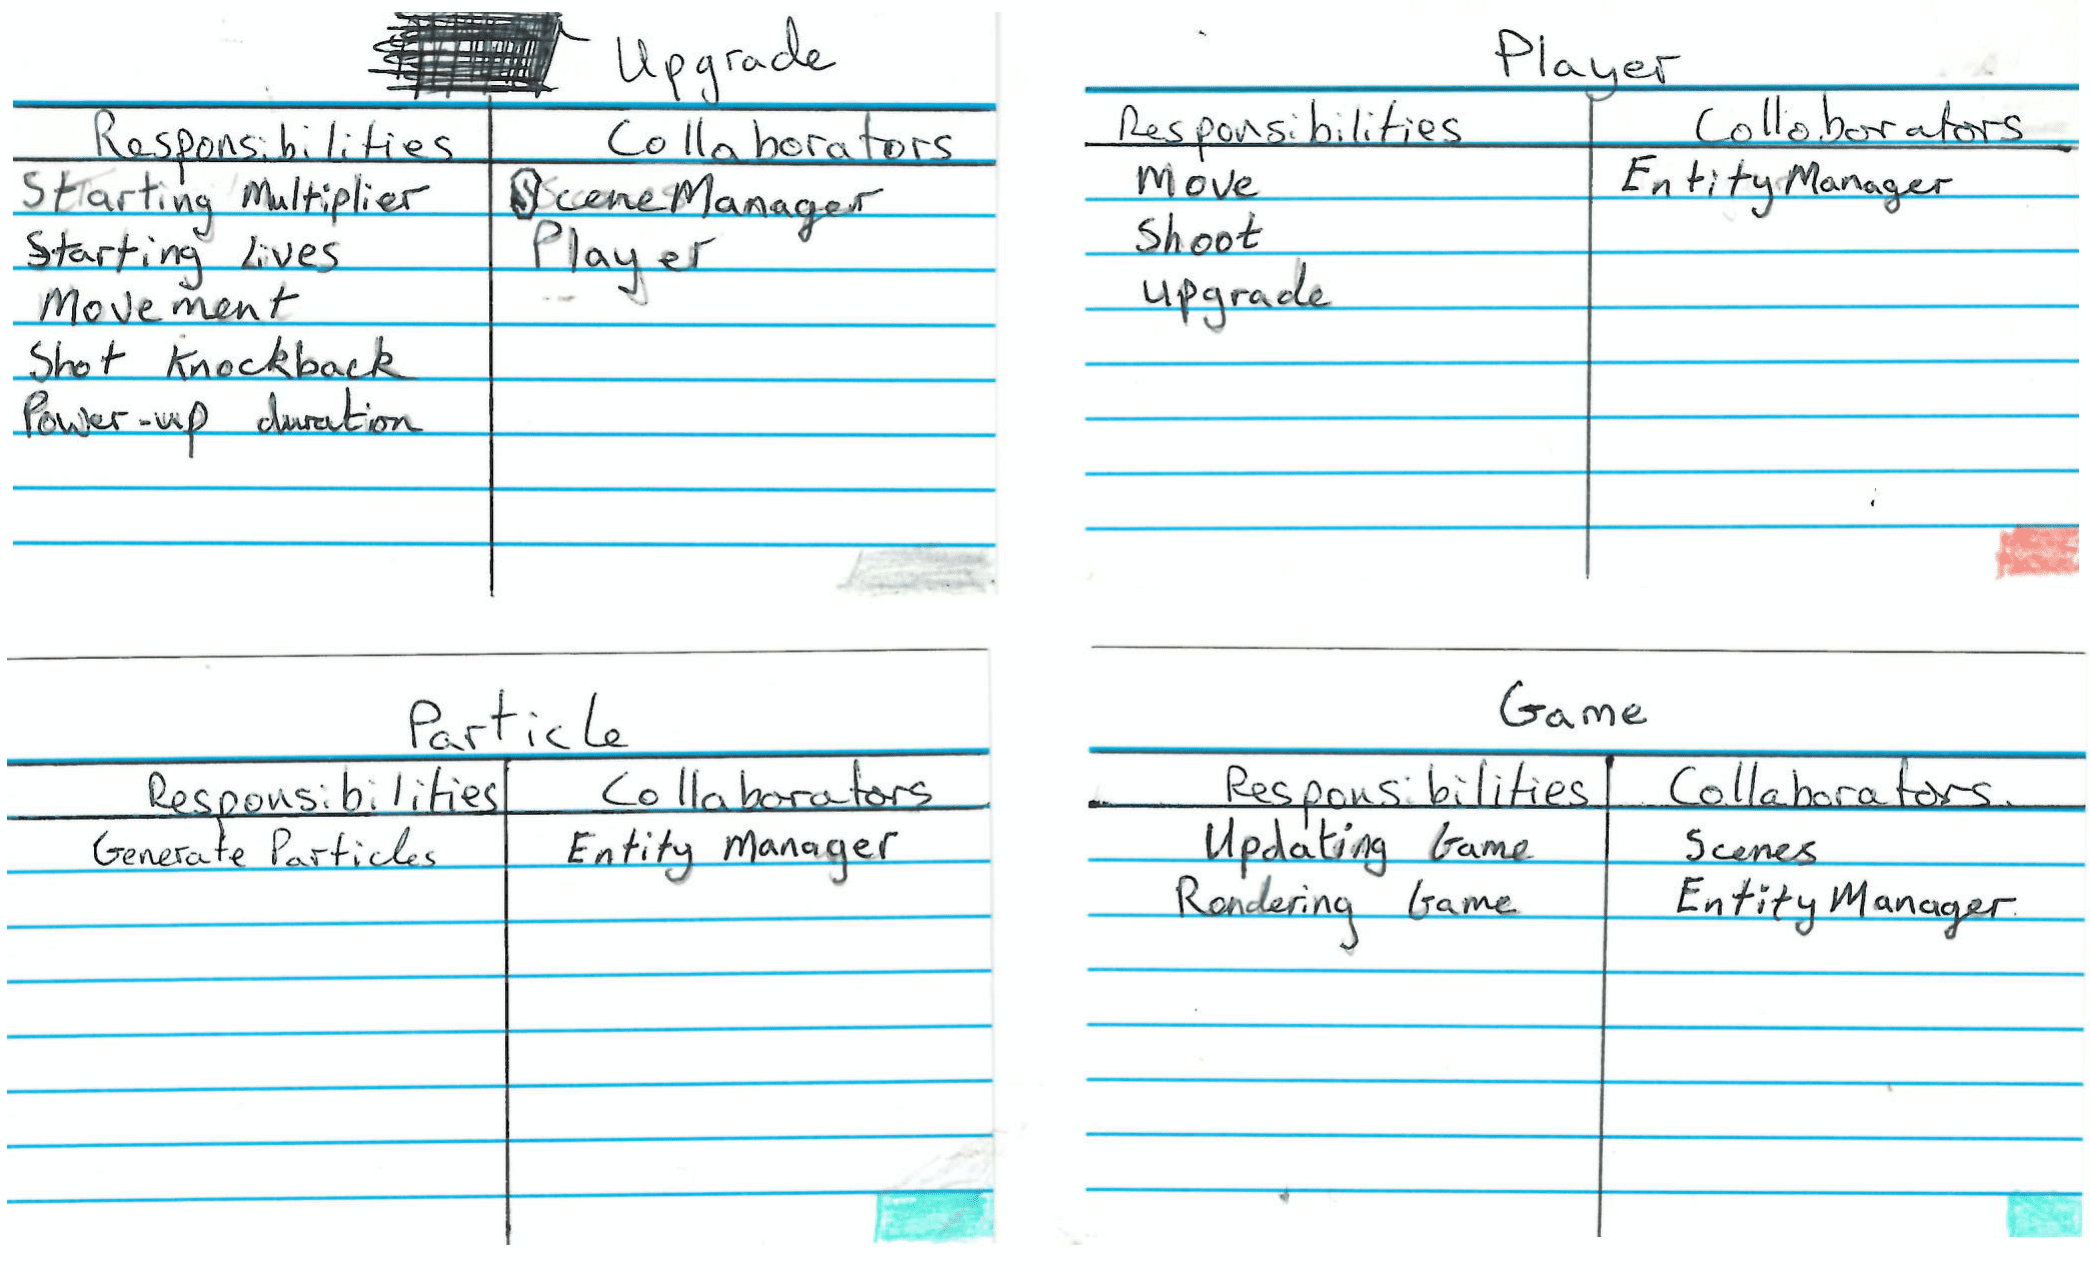 Upgrade
Responsibilities Collaborators
Starting Multiplier SceneManager
Starting Lives Player
Movement
Shot Knockback
Power-up duration
Player
Responsibilities Collaborators
Move EntityManager
Shoot
upgrade
Particle
Responsibilities Collaborators
Generate Particles Entity Manager
Game
Responsibilities Collaborators
Updating Game Scenes
Rendering Game EntityManager